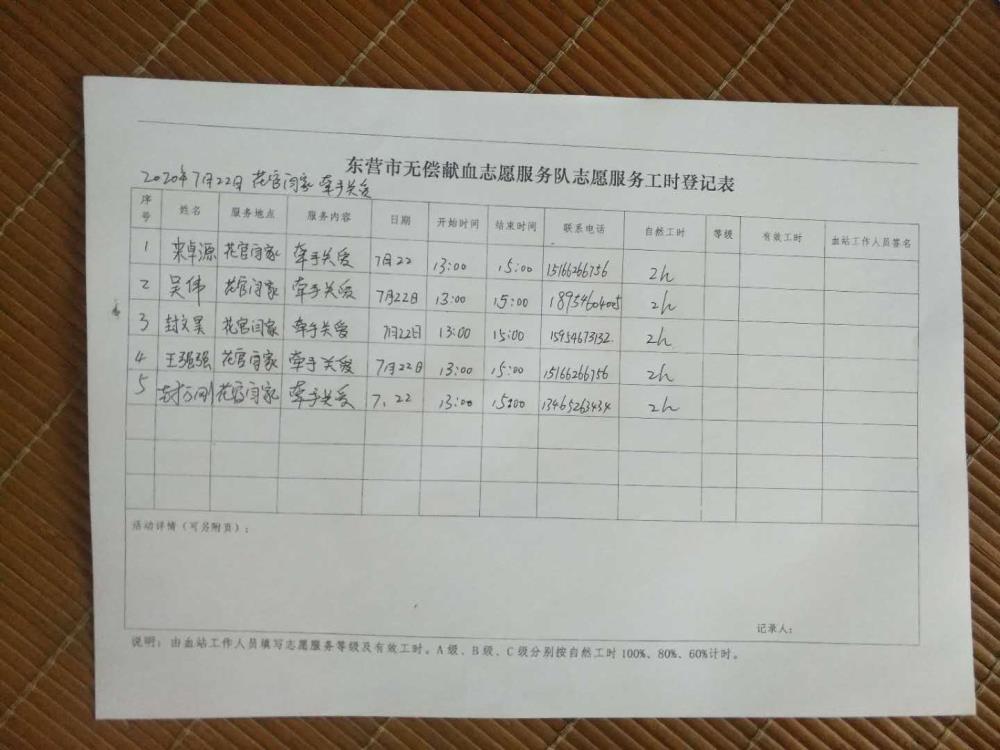 东营市无偿献血志愿服务队志愿服务工时登记表
2020年7月22日 花官闫家 牵手关爱
序号 姓名 服务地点 服务内容 日期 开始时间 结束时间 联系电话 自然工时 等级 有效工时 血站工作人员签名
1 来卓源 花官闫家 牵手关爱 7月22 13:00 15:00 15166266756 2h
2 吴伟 花官闫家 牵手关爱 7月22日 13:00 15:00 18954604005 2h
3 封文昊 花官闫家 牵手关爱 7月22日 13:00 15:00 15954673132 2h
4 王强强 花官闫家 牵手关爱 7月22日 13:00 15:00 15166266756 2h
5 花官闫家 牵手关爱 7、22 13:00 15:00 13465263434 2h
活动详情（可另附页）：
记录人：
说明：由血站工作人员填写志愿服务等级及有效工时。A级、B级、C级分别按自然工时100%、80%、60%计时。